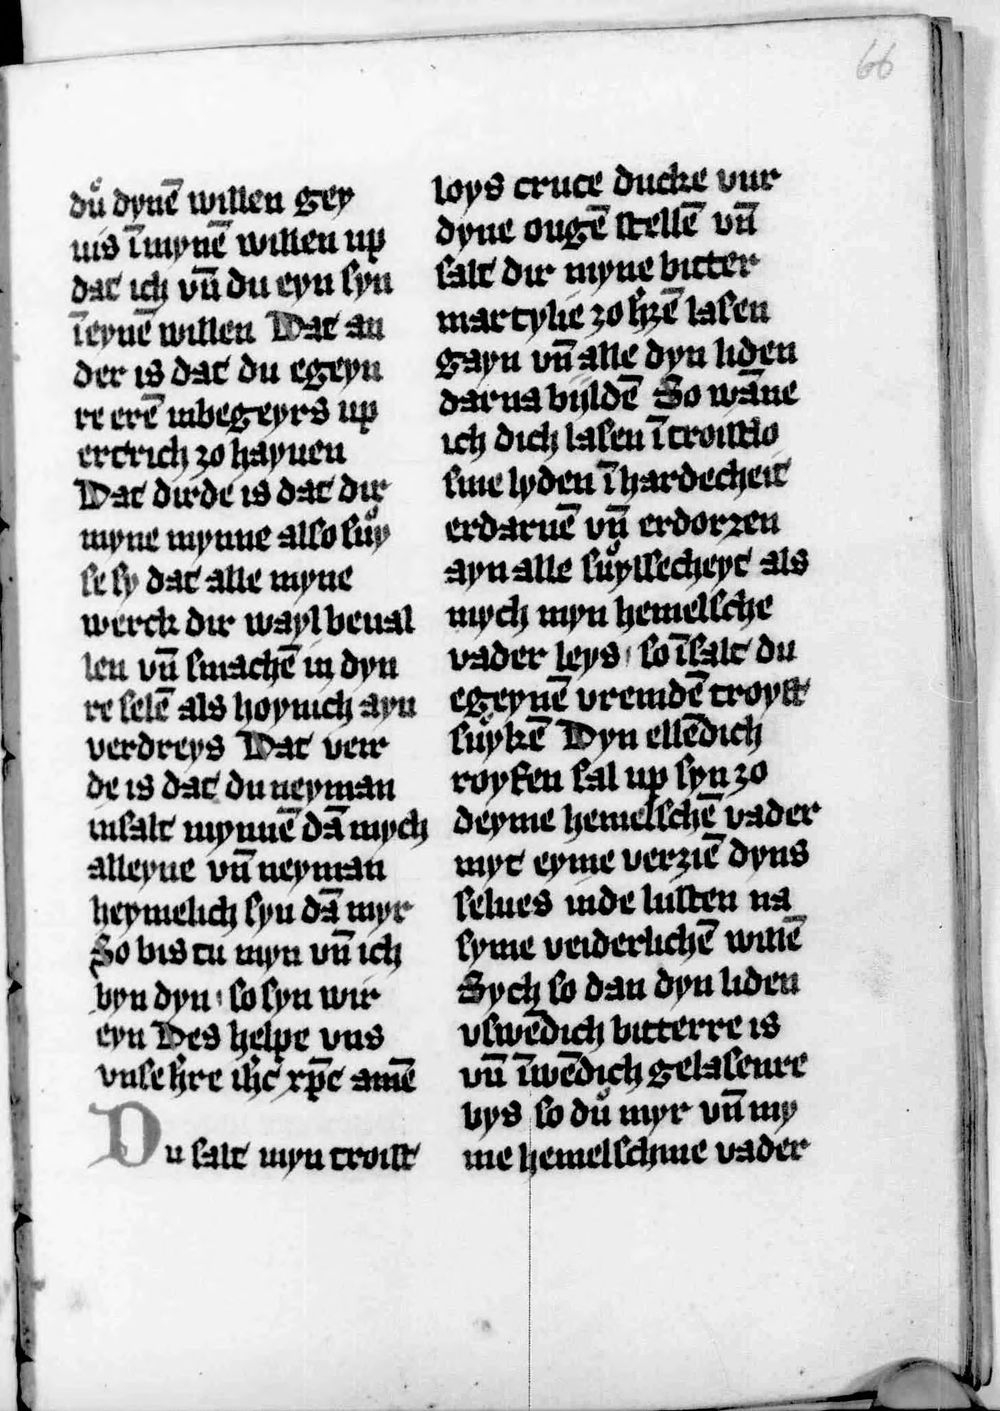 66
duͦ dynē willen gey
nis ī mynē willen up
dat ich vn̄ du eyn syn
ī eynē willen Dat an
der is dat du egeyn
re erē inbegeyrs up
ertrich zo hayuen
Dat dirde is dat dir
myne mynne also suͦy
se sy dat alle myne
werck dir wayl beual
len vn̄ smachē in dyn
re selē als hoynich ayn
verdreys Dat veir
de is dat du neyman
insalt mynnē dā mych
alleyne vn̄ neyman
heymelich syn dā myr
So bis tu myn vn̄ ich
byn dyn so syn wir
eyn Des helpe vns
vnse h̄re ih̄c xp̄c amē
Du salt myn troist
loys cruce ducke vur
dyne ougē stellē vn̄
salt dir myne bitter
martylie zo h̄zē lasen
gayn vn̄ alle dyn liden
darna bijldē So wāne
ich dich lasen ī troistlo
sme lyden ī hardecheit
erdaruē vn̄ erdorzen
ayn alle suͦyssecheyt als
mych myn hemelsche
vader leys so īsalt du
egeynē vremdē troyst
suͦykē Dyn ellēdich
royfen sal up syn zo
deyme hemelschē vader
myt eyme verziē dyns
selues inde lusten na
syme veiderlichē willē
Sych so dan dyn liden
vswēdich bitterre is
vn̄ īwēdich gelasenre
bys so duͦ myr vn̄ my
me hemelschme vader